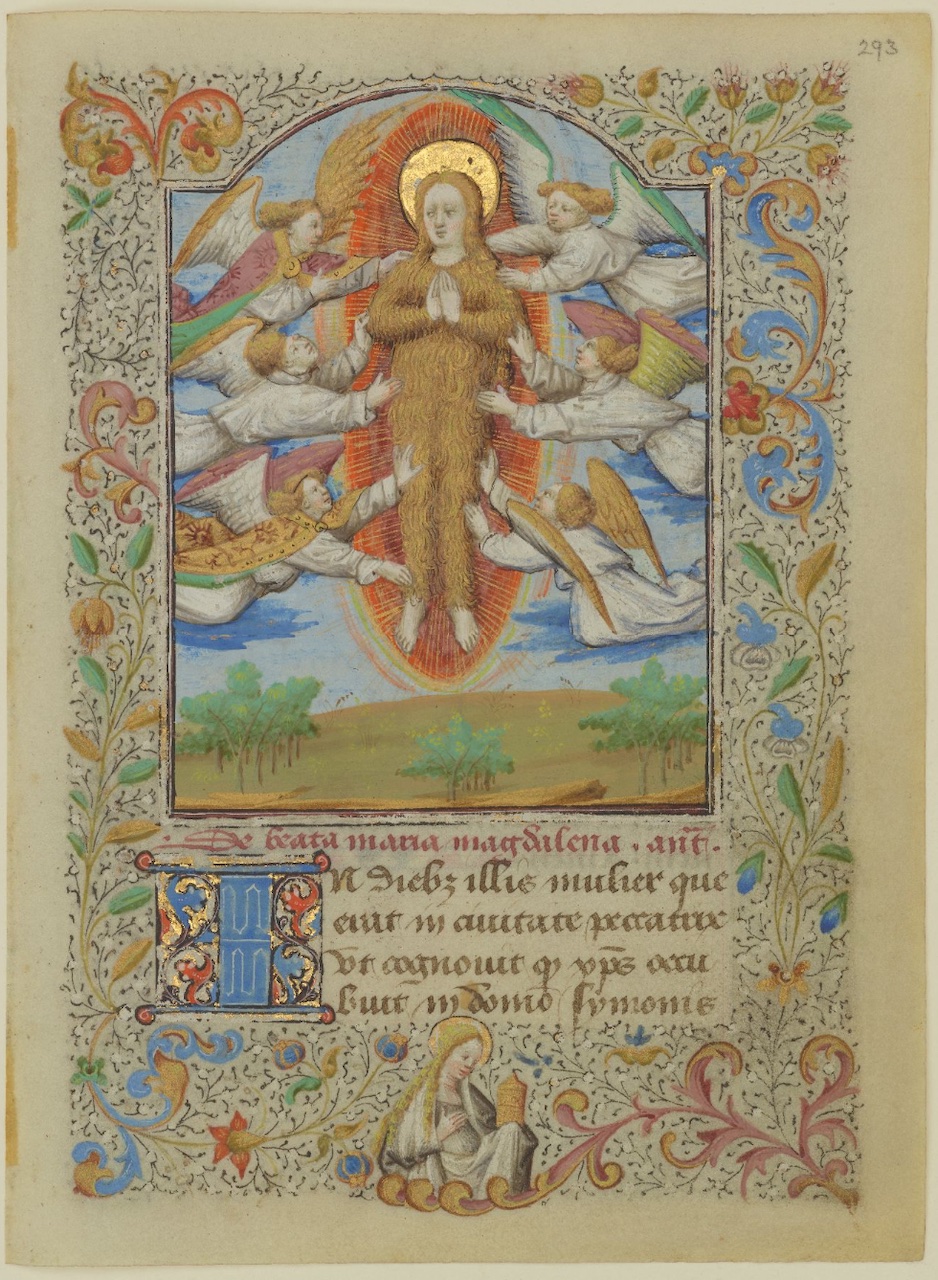 293
De beata maria magdalena . añt .
IN diebꝫ illis mulier que
erat in ciuitate peccatrix
Vt cognouit qꝫ xp̄s accu
buit in domo symonis